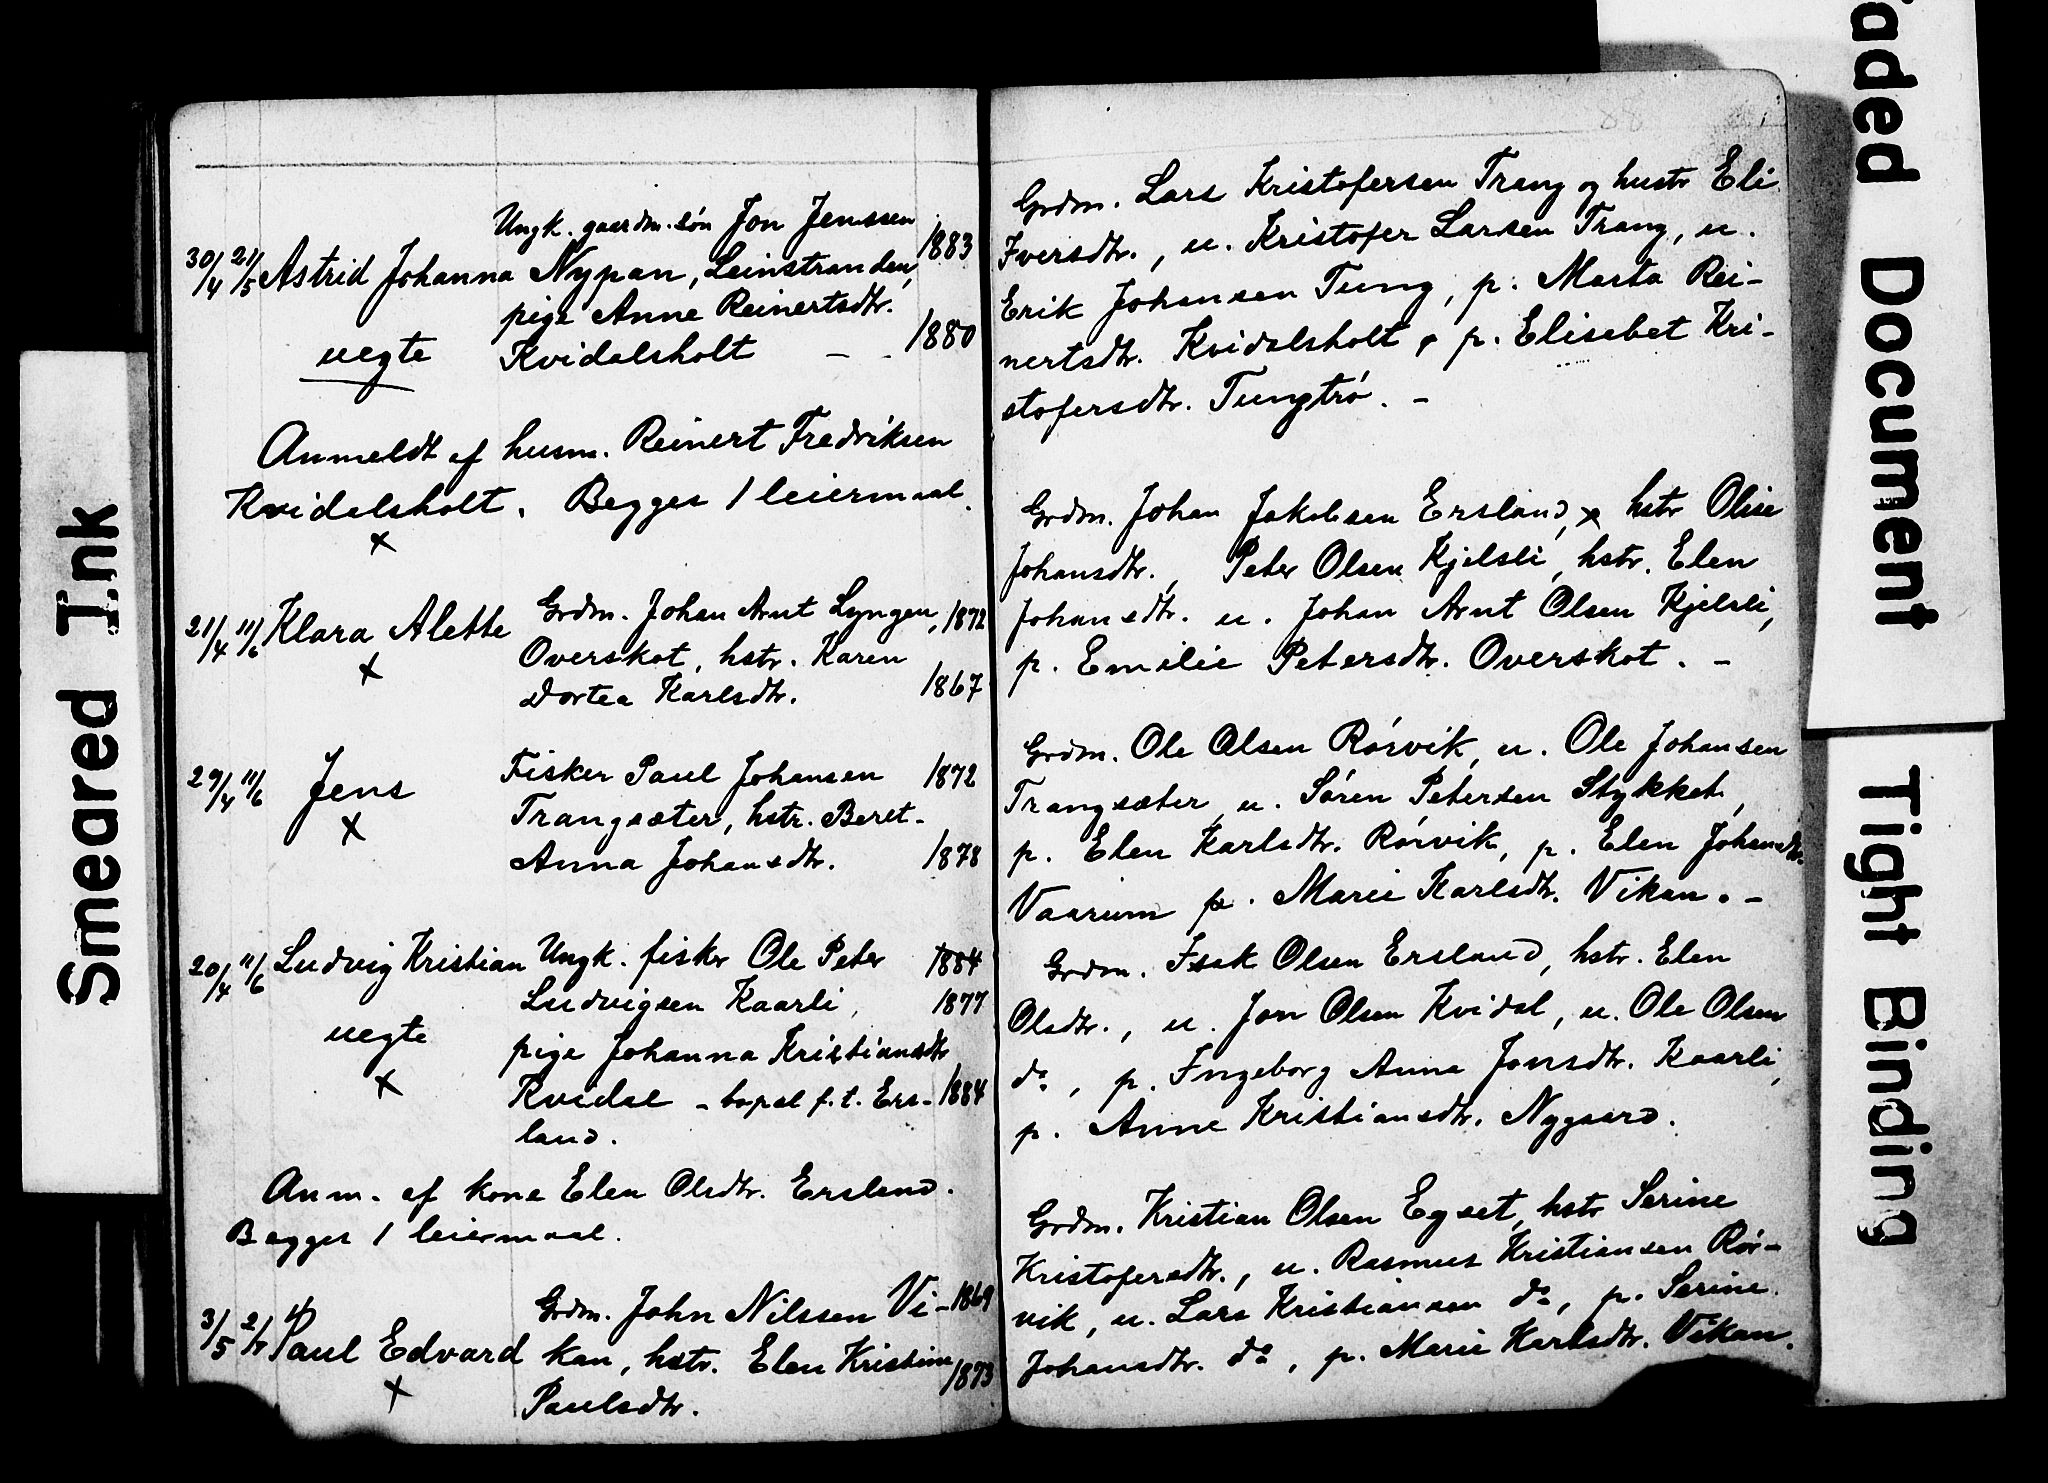 Ungk. gaardm. søn Jon Jenssen
30/4 21/5 Astrid Johanna Nypan, Leinstranden, 1883
pige Anne Reinertsdtr.
uegte Kvidalsholt - - 1880
Anmeldt af husm. Reinert Fredriksen
Kvidalsholt. Begges 1 leiermaal.
x
21/4 11/6 Klara Alette Grdm. Johan Arnt Lyngen, 1872
Overskot, hstr. Karen
x Dortea Karlsdtr. 1867
29/4 11/6 Jens Fisker Paul Johansen 1872
x Trangsæter, hstr. Beret-
Anna Johansdtr. 1878
20/4 11/6 Ludvig Kristian Ungk. fisker Ole Peter 1884
Ludvigsen Kaarli, 1877
uegte pige Johanna Kristiansdtr
x Kvidal - bopæl f. t. Ers- 1884
land.
Anm. af kone Elen Olsdtr. Ersland.
Begges 1 leiermaal.
3/5 2/7 Paul Edvard Grdm. John Nilssen Vi- 1869
kan, hstr. Elen Kristine 1873
x Paulsdtr.
88
Grdm. Lars Kristofersen Trang og hustr Eli
Iversdtr., u. Kristofer Larsen Trang, u.
Erik Johansen Tung, p. Marta Rei-
nertsdtr. Kvidalsholt, p. Elisabet Kri-
stofersdtr. Tungtrø. -
Grdm. Johan Jakobsen Ersland, x hstr Olise
Johansdtr., Peter Olsen Kjelsli, hstr. Elen
Johansdtr. u. Johan Arnt Olsen Kjelsli,
p. Emilie Petersdtr. Overskot. -
Grdm. Ole Olsen Rørvik, u. Ole Johansen
Trangsæter, u. Søren Petersen Stykket,
p. Elen Karlsdtr. Rørvik, p. Elen Johansdtr.
Vaarum p. Marie Karlsdtr. Vikan. -
Grdm. Isak Olsen Ersland, hstr. Elen
Olsdtr., u. Jon Olsen Kvidal, u. Ole Olsen
do, p. Ingeborg Anna Jonsdtr. Kaarli,
p. Anne Kristiansdtr. Nygaard.
Grdm. Kristian Olsen Egset, hstr Serine
Kristofersdtr., u. Rasmus Kristiansen Rør-
vik, u. Lars Kristiansen do, p. Serine
Johansdtr. do, p. Marie Karlsdtr. Vikan.
Smeared Ink
aded Document
Tight Binding